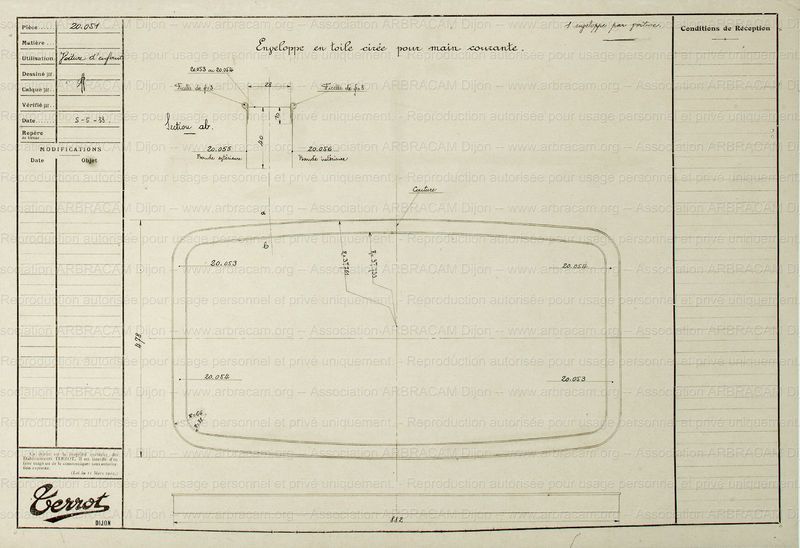 Pièce.... 20.051
Matière..
Utilisation. Voiture d'enfant
Dessiné par.
Calqué par.
Vérifié par.
Date.... 5-5-33
Repère
MODIFICATIONS
Date Objet
1 enveloppe par voiture.
Enveloppe en toile cirée pour main courante.
Conditions de Réception
20.053 ou 20.054
Ficelle de φ=3
28
Ficelle de φ=3
10
Section ab.
40
20.055
Bande extérieure
20.056
Bande intérieure
Couture
a
b
20.053
20.054
20.054
20.053
Ce dessin est la propriété exclusive des
Etablissements TERROT. Il est interdit d'en
faire usage ou de le communiquer sans autorisa-
tion expresse.
Terrot
DIJON
882
Reproduction autorisée pour usage personnel et privé uniquement. -- Association ARBRACAM Dijon -- www.arbracam.org